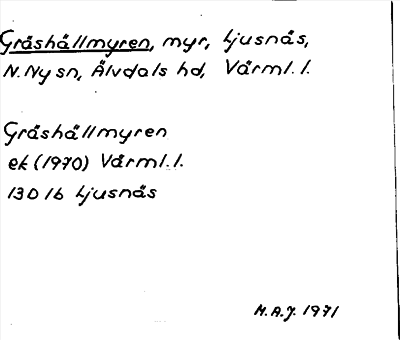 Gråshällmyren, myr, Ljusnäs,
N. Ny sn, Älvdals hd, Värml. l.
Gråshällmyren
ek (1970) Värml. l.
13D 1b Ljusnäs
M.A.J. 1971